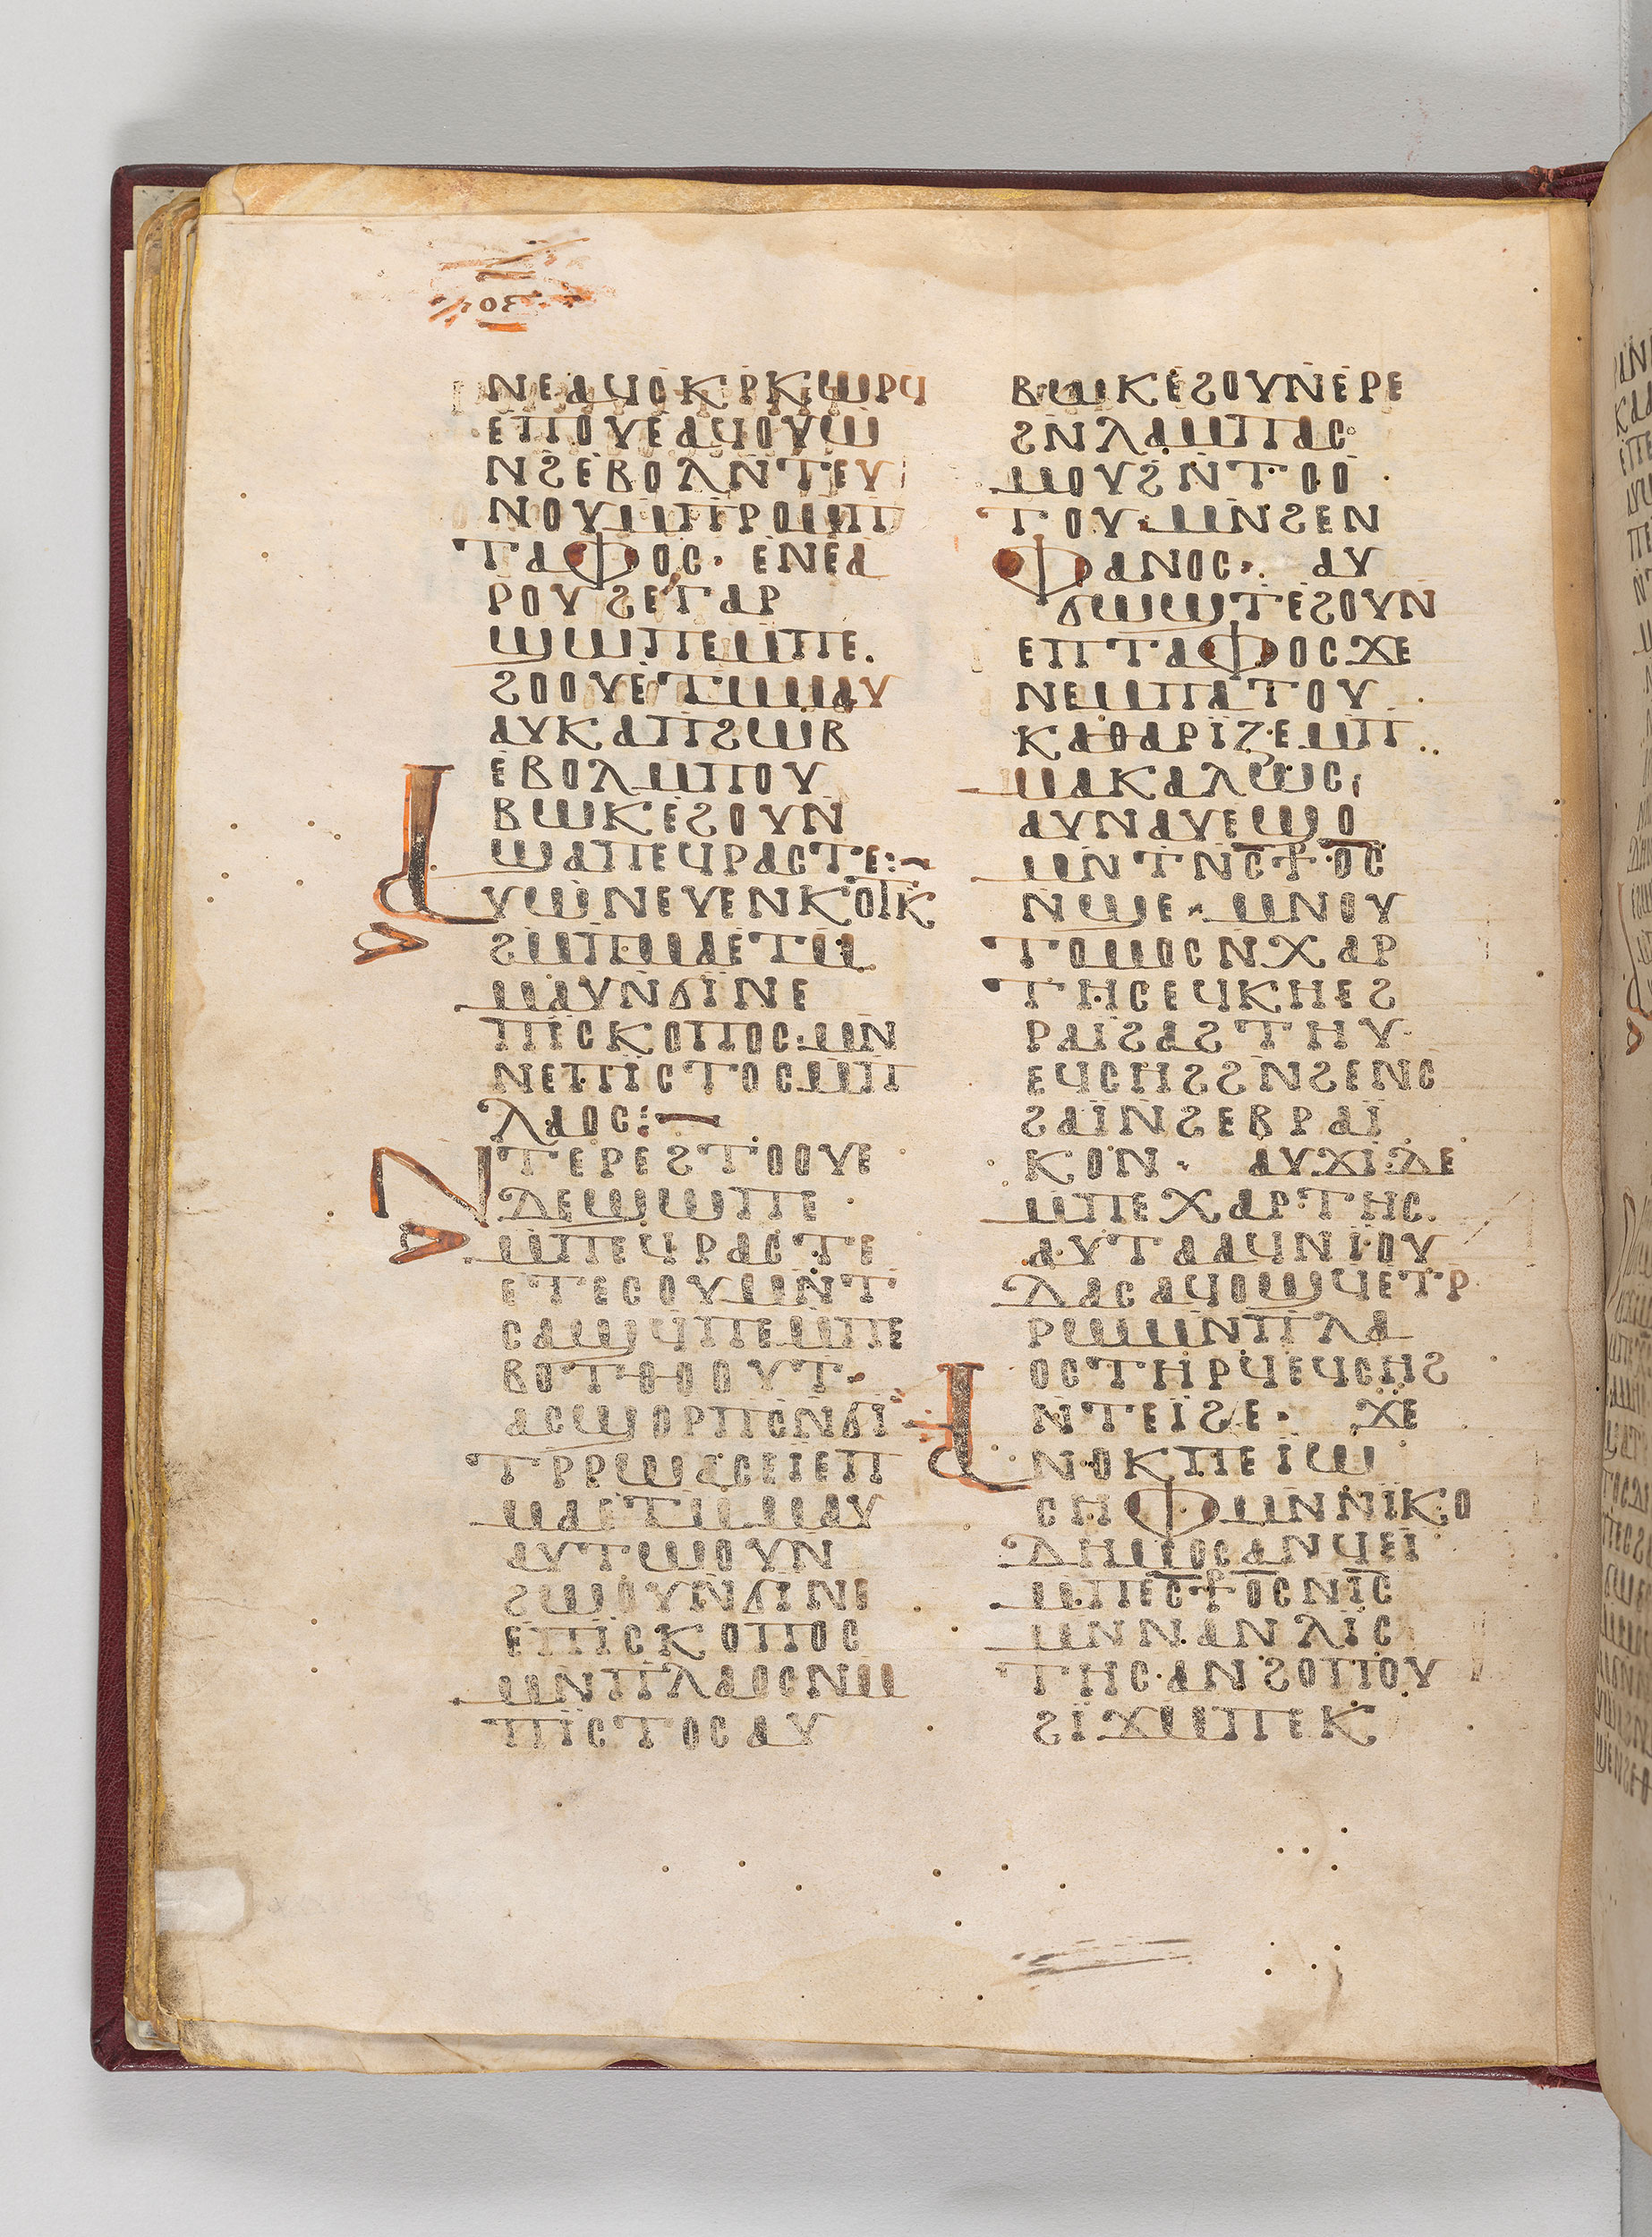 ⲛⲉⲁϥⲟⲕⲣⲕⲱⲣϥ
ⲉⲡⲟⲩⲉⲁϥⲟⲩⲱ
ⲛϩⲉⲃⲟⲗⲛ̇ⲧⲉⲩ
ⲛⲟⲩⲙ̇ⲡⲣⲟⲙ̇ⲡ
ⲧⲁⲫⲟⲥ· ⲉⲛⲉⲁ
ⲣⲟⲩϩⲉⲅⲁⲣ
ϣⲱⲡⲉⲙ̇ⲡⲉ.
ϩⲟⲟⲩⲉ̇ⲧⲙ̇ⲙⲁⲩ
ⲁⲩⲕⲁⲡϩⲱⲃ
ⲉⲃⲟⲗⲙ̇ⲡⲟⲩ
ⲃⲱⲕⲉ̇ϩⲟⲩⲛ
ϣⲁⲡⲉϥⲣⲁⲥⲧⲉ:–
ⲁⲩⲱⲛⲉⲩⲉⲛⲕⲟⲧⲕ
ϩⲙ̇ⲡⲙⲁⲉⲧⲙ̇
ⲙⲁⲩⲛ̇ϭⲓⲛⲉ
ⲡⲓ̈ⲥⲕⲟⲡⲟⲥ·ⲙⲛ̇
ⲛⲉⲡⲓ̈ⲥⲧⲟⲥⲙ̇ⲡ
ⲗⲁⲟⲥ:–
ⲛⲧⲉⲣⲉϩⲧⲟⲟⲩⲉ
ⲇⲉϣⲱⲡⲉ·
ⲙ̇ⲡⲉϥⲣⲁⲥⲧⲉ
ⲉⲧⲉⲥⲟⲩⲙⲛ̇ⲧ
ⲥⲁϣϥⲡⲉⲙ̇ⲡⲉ
ⲃⲟⲧⲑⲟⲟⲩⲧ·
ⲁⲥϣⲟⲣⲡⲥⲛ̇ϭⲓ̈
ⲧⲣⲣⲱⲁⲥⲉⲓⲉⲡ
ⲙⲁⲉⲧⲙ̇ⲙⲁⲩ
ⲁⲩⲧⲱⲟⲩⲛ
ϩⲱⲟⲩⲛ̇ϭⲓⲛⲉ
ⲉⲡⲓ̈ⲥⲕⲟⲡⲟⲥ
ⲙⲛ̇ⲡⲗⲁⲟⲥⲛⲙ̇
ⲡⲓ̈ⲥⲧⲟⲥⲁⲩ
ⲃⲱⲕⲉ̇ϩⲟⲩⲛⲉⲣⲉ
ϩⲛ̇ⲗⲁⲙⲡⲁⲥ
ⲙⲟⲩϩⲛ̇ⲧⲟⲟ
ⲧⲟⲩ·ⲙⲛ̇ϩⲉⲛ
ⲫⲁⲛⲟⲥ·. ⲁⲩ
ϭⲱϣⲧⲉ̇ϩⲟⲩⲛ
ⲉⲡⲧⲁⲫⲟⲥϫⲉ
ⲛⲉⲙ̇ⲡⲁⲧⲟⲩ
ⲕⲁⲑⲁⲣⲓ̈ⲍⲉⲙ̇ⲡ
ⲙⲁⲕⲁⲗⲱⲥ,
ⲁⲩⲛⲁⲩⲉϣⲟ
ⲙⲛ̇ⲧⲛⲥ⳨ⲟⲥ
ⲛ̇ϣⲉ· ⲙⲛⲟⲩ
ⲧⲟⲙⲟⲥⲛⲭⲁⲣ
ⲧⲏⲥⲉϥⲕⲏⲉϩ
ⲣⲁⲓ̈ϩⲁϩⲧⲏⲩ
ⲉϥⲥⲏϩϩⲛ̇ϩⲉⲛⲥ
ϩⲁⲓ̈ⲛ̇ϩⲉⲃⲣⲁⲓ̈
ⲕⲟⲛ· ⲁⲩϫⲓ·ⲇⲉ
ⲙ̇ⲡⲉⲭⲁⲣⲧⲏⲥ.
ⲁⲩⲧⲁⲁϥⲛⲓ̇ⲟⲩ
ⲇⲁⲥⲁϥⲟϣϥⲉⲧⲣ
ⲣⲱⲙⲛ̇ⲡⲗⲁ
ⲟⲥⲧⲏⲣϥⲉϥⲥⲏϩ
ⲛ̇ⲧⲉⲓ̈ϩⲉ· ϫⲉ
ⲁⲛⲟⲕⲡⲉⲓⲱ
ⲥⲏⲫⲙⲛ̇ⲛⲓ̈ⲕⲟ
ⲇⲏⲙⲟⲥⲁⲛϥⲉⲓ
ⲙ̇ⲡⲉⲥ⳨ⲟⲥⲛⲓⲥ
ⲙⲛ̇ⲛⲁⲛⲗⲓ̈ⲥ
ⲧⲏⲥ·ⲁⲛϩⲟⲡⲟⲩ
ϩⲓ̈ϫⲙ̇ⲡⲉⲕ